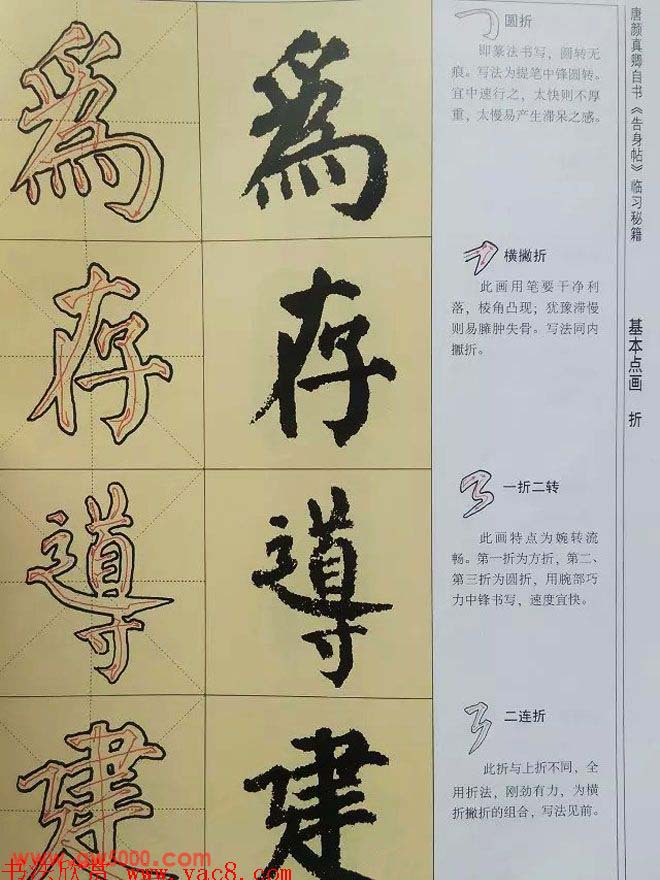 唐颜真卿自书《告身帖》临习秘籍
基本点画 折
为
圆折
即篆法书写，圆转无
痕。写法为提笔中锋圆转。
宜中速行之，太快则不厚
重，太慢易产生滞呆之感。
存
存
横撇折
此画用笔要干净利
落，棱角凸现；犹豫滞慢
则易臃肿失骨。写法同内
擫折。
導
導
一折二转
此画特点为婉转流
畅。第一折为方折，第二、
第三折为圆折，用腕部巧
力中锋书写，速度宜快。
建
建
二连折
此折与上折不同，全
用折法，刚劲有力，为横
折撇折的组合，写法见前。
书法欣赏 www.yac8.com